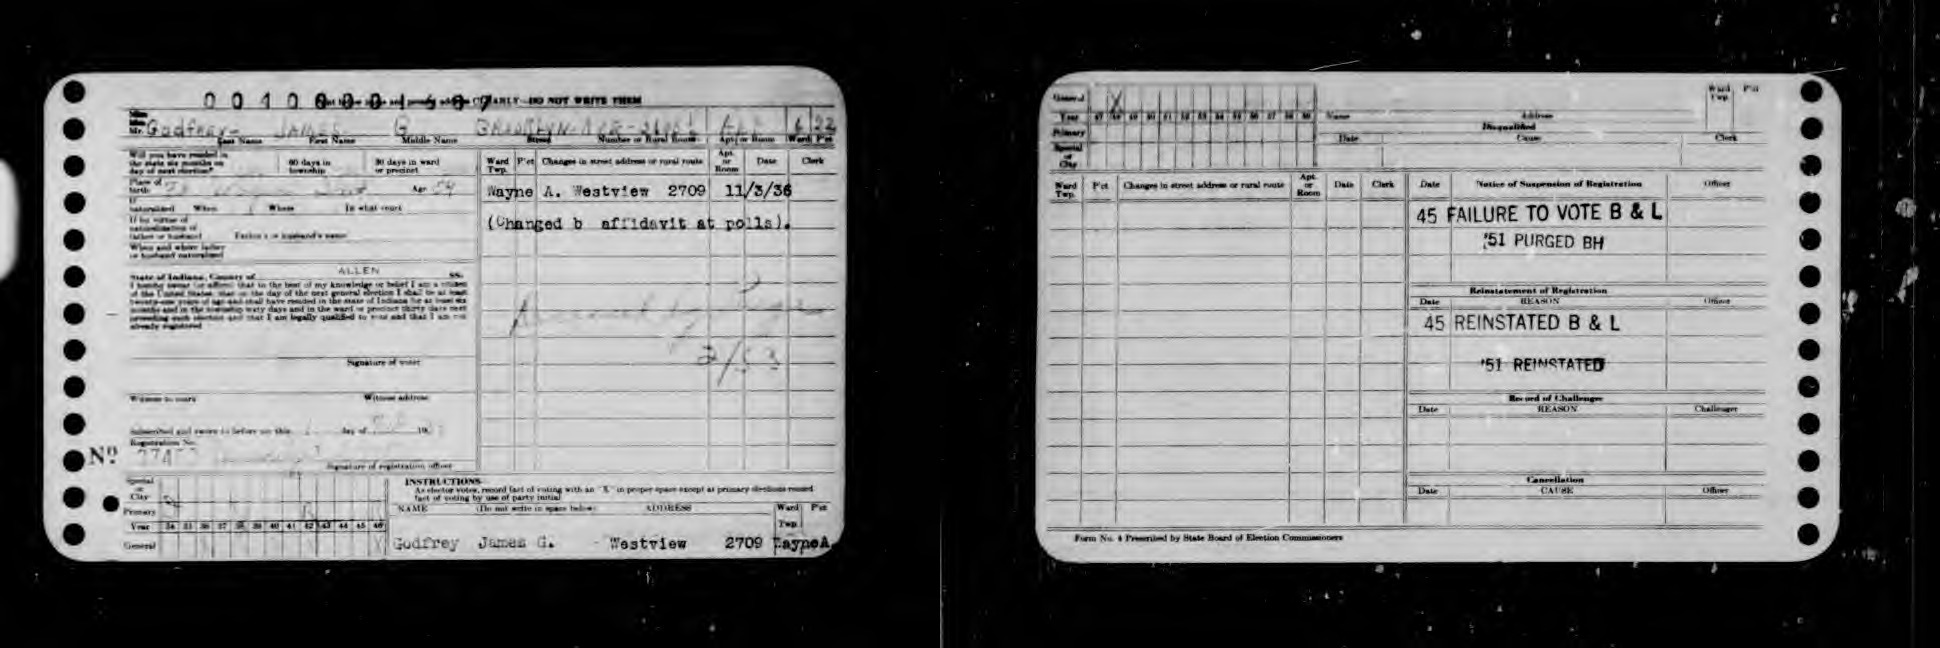 CLEARLY—DO NOT WRITE THEM
Mr. Godfrey- JAMES G BROOKLYN-AVE- 6 22
Last Name First Name Middle Name Street Number or Rural Route Apt. or Room Ward P'ct
Will you have resided in
the state six months on
day of next election?
60 days in
township
30 days in ward
or precinct
Place of
birth Age 54
If
naturalized When Where In what court
If by virtue of
naturalization of
father or husband Father's or husband's name
When and where father
or husband naturalized
State of Indiana, County of ALLEN ss.
I hereby swear (or affirm) that to the best of my knowledge or belief I am a citizen
of the United States, that on the day of the next general election I shall be at least
twenty-one years of age and shall have resided in the state of Indiana for at least six
months and in the township sixty days and in the ward or precinct thirty days next
preceding such election and that I am legally qualified to vote and that I am not
already registered
Signature of voter
Witness to mark Witness address
Subscribed and sworn to before me this day of 19
Registration No.
Nº
Signature of registration officer
Ward Twp. P'ct Changes in street address or rural route Apt. or Room Date Clerk
Wayne A. Westview 2709 11/3/36
(Changed b affidavit at polls).
2/53
Special
or
City
Primary
Year 34 35 36 37 38 39 40 41 42 43 44 45 46
General X
INSTRUCTIONS
As elector votes, record fact of voting with an "X" in proper space except at primary elections record
fact of voting by use of party initial
NAME (Do not write in space below) ADDRESS Ward Twp. P'ct
Godfrey James G. - Westview 2709 WayneA.
General X
Year 47 48 49 50 51 52 53 54 55 56 57 58 59
Primary
Special
or
City
Name Address
Ward Twp. P'ct
Disqualified
Date Cause Clerk
Ward Twp. P'ct Changes in street address or rural route Apt. or Room Date Clerk
Date Notice of Suspension of Registration Officer
45 FAILURE TO VOTE B & L
'51 PURGED BH
Reinstatement of Registration
Date REASON Officer
45 REINSTATED B & L
'51 REINSTATED
Record of Challenges
Date REASON Challenger
Cancellation
Date CAUSE Officer
Form No. 4 Prescribed by State Board of Election Commissioners